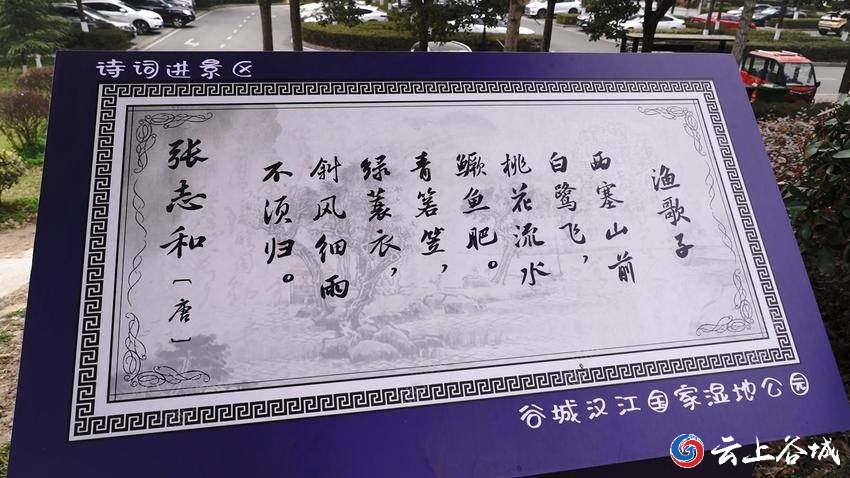 诗词进景区
渔歌子
西塞山前
白鹭飞，
桃花流水
鳜鱼肥。
青箬笠，
绿蓑衣，
斜风细雨
不须归。
张志和［唐］
谷城汉江国家湿地公园
云上谷城